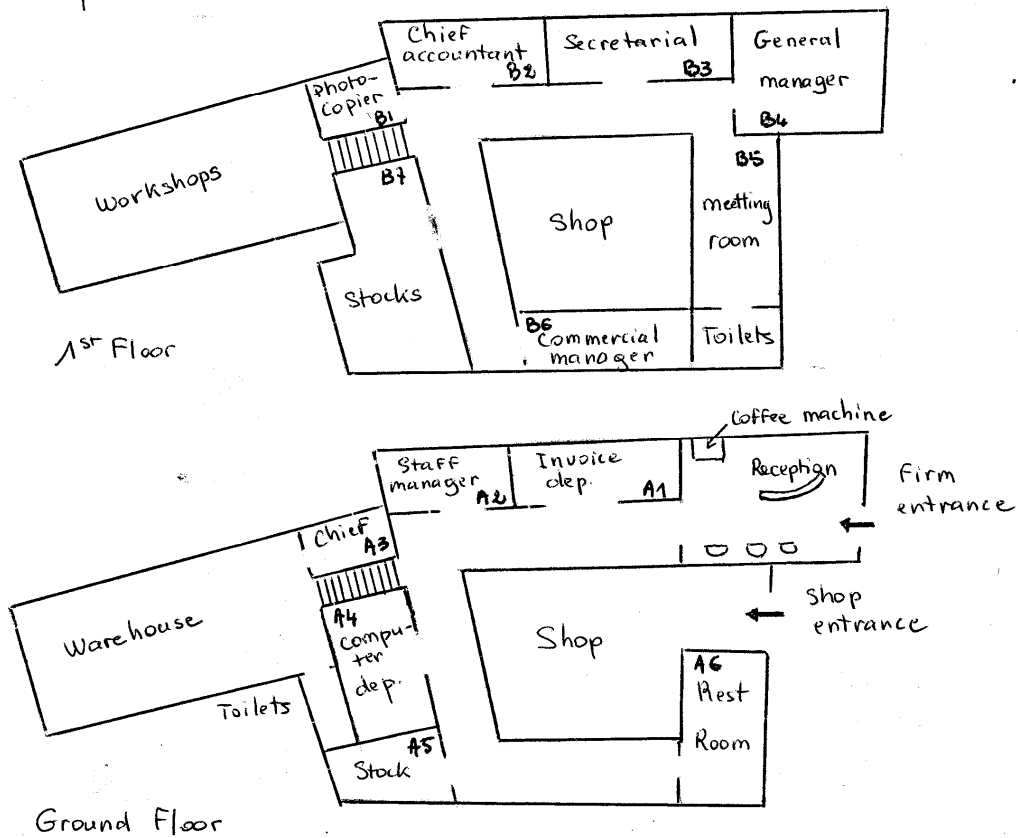 Chief
accountant
B2
Secretarial
B3
General
manager
B4
Photo-
copier
B1
B7
B5
Workshops
Shop
metting
room
Stocks
B6
Commercial
manager
Toilets
1st Floor
Coffee machine
Staff
manager
A2
Invoice
dep.
A1
Reception
Firm
entrance
Chief
A3
A4
Compu-
ter
dep.
Warehouse
Shop
Shop
entrance
A6
Rest
Room
Toilets
A5
Stock
Ground Floor